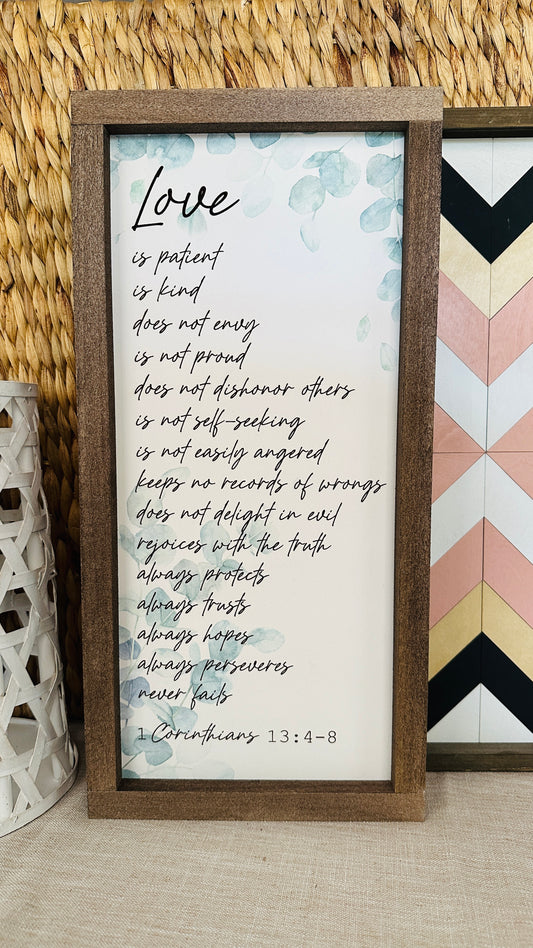 Love
is patient
is kind
does not envy
is not proud
does not dishonor others
is not self-seeking
is not easily angered
keeps no records of wrongs
does not delight in evil
rejoices with the truth
always protects
always trusts
always hopes
always perseveres
never fails
1 Corinthians 13:4-8